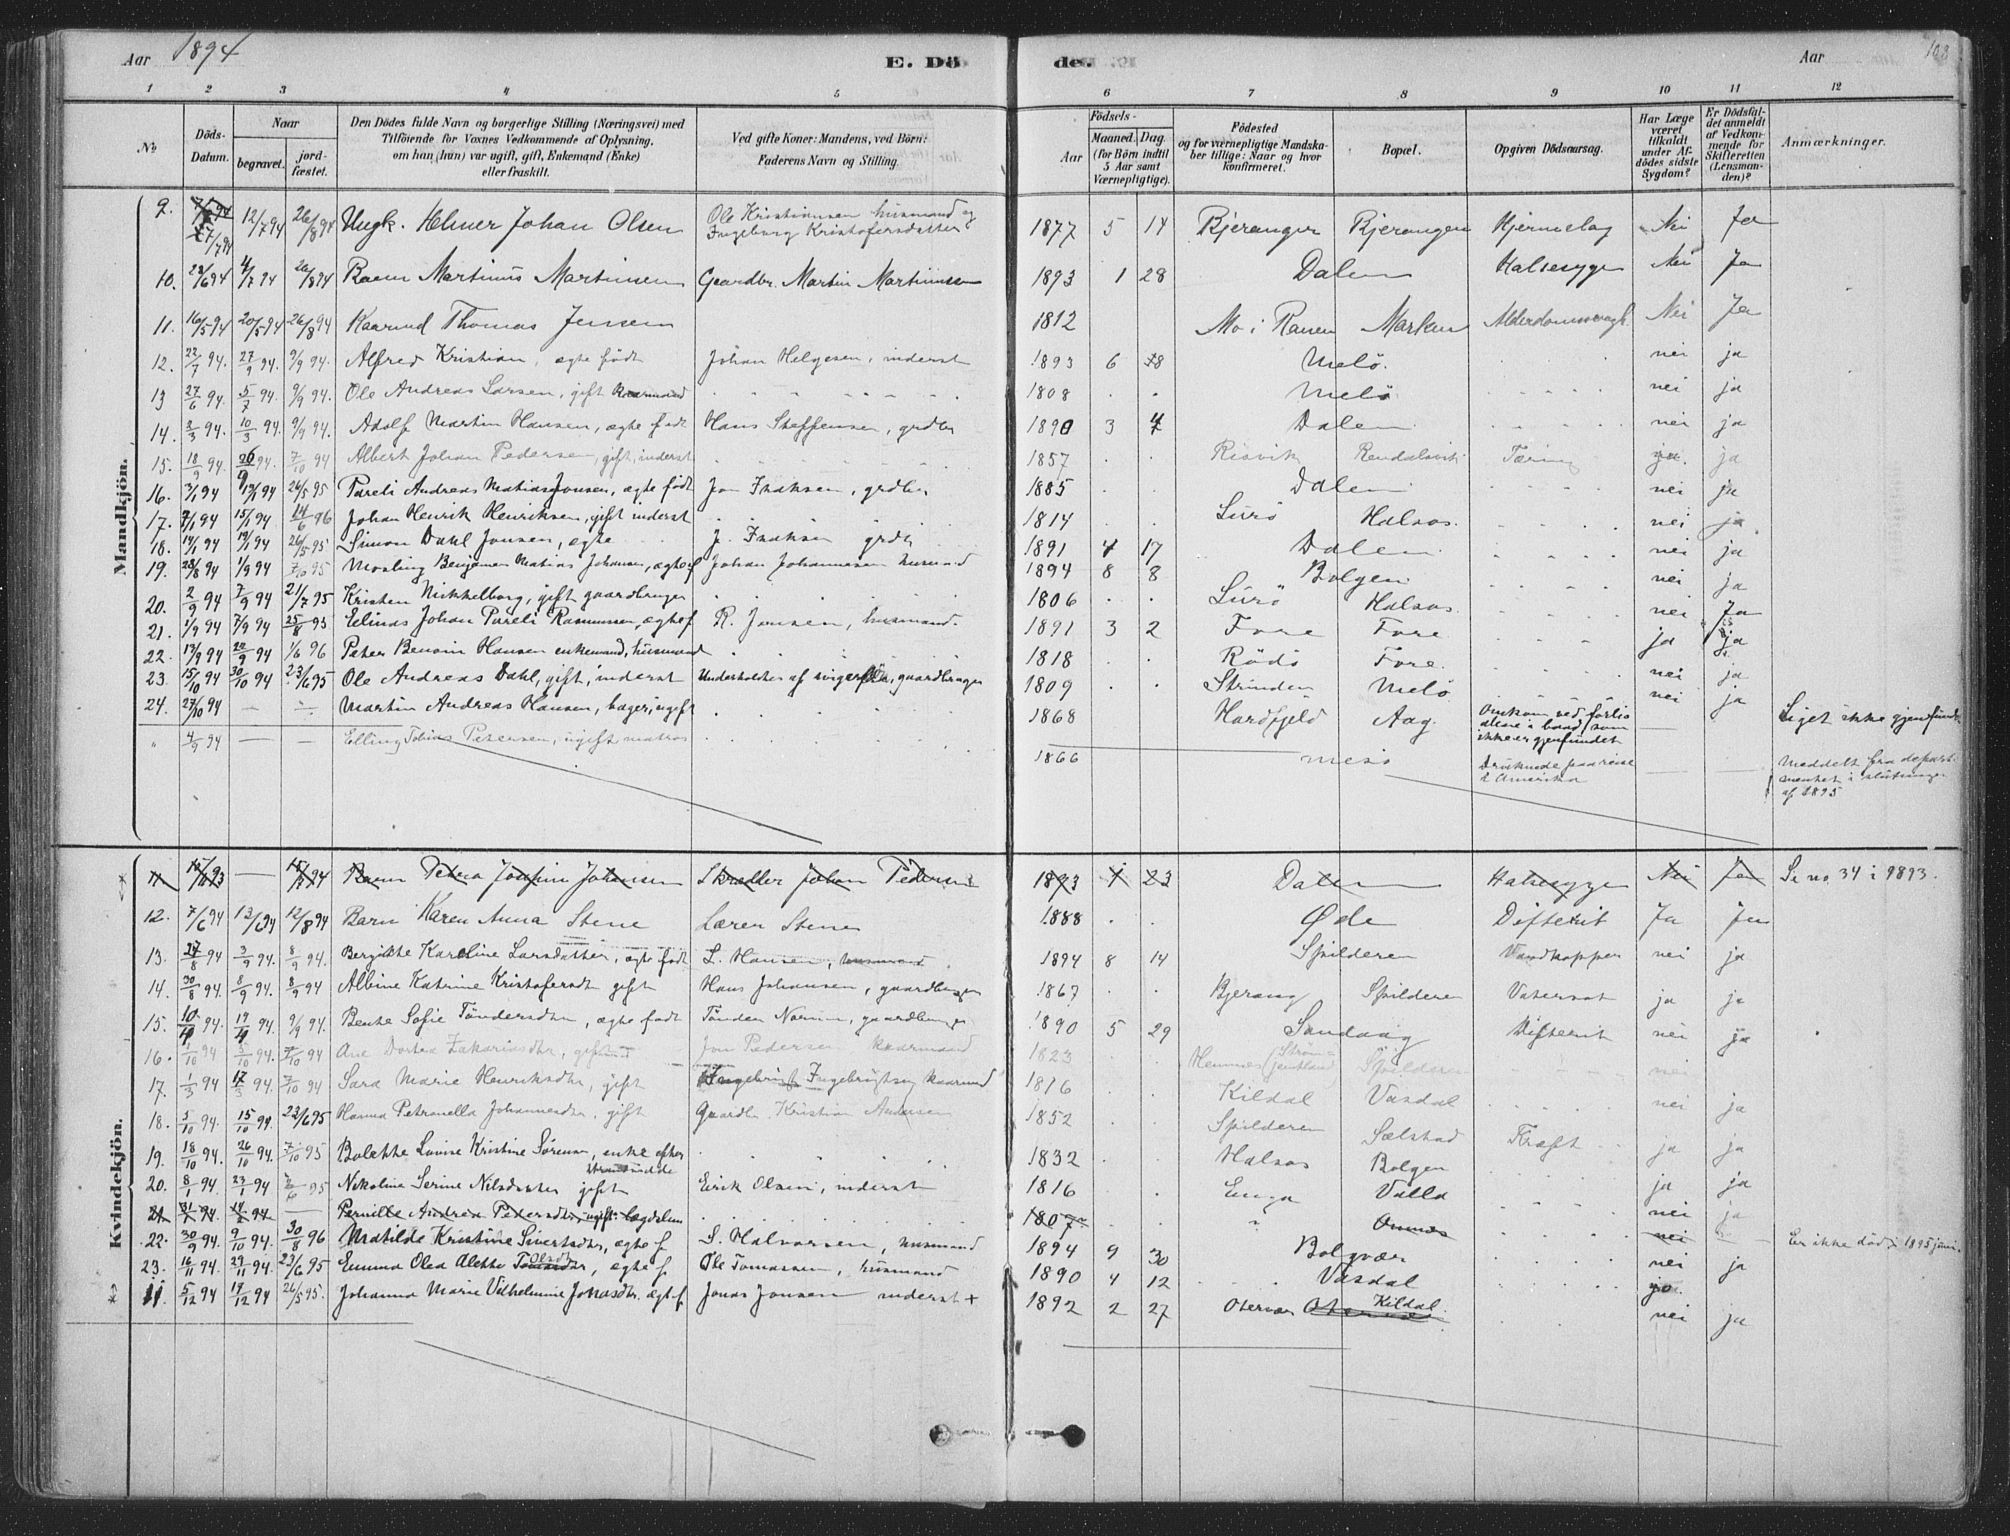 Aar 1894 E. Dö de. Aar 103
1 2 3 4 5 6 7 8 9 10 11 12
No Döds-Datum. Naar begravet. jord-fæstet. Den Dödes fulde Navn og borgerlige Stilling (Næringsvei) med Tilföiende for Voxnes Vedkommende af Oplysning, om han (hun) var ugift, gift, Enkemand (Enke) eller fraskilt. Ved gifte Koner: Mandens, ved Börn: Faderens Navn og Stilling. Födsels- Aar Maaned. Dag. (for Börn indtil 5 Aar samt Værnepligtige). Födested og for værnepligtige Mandskaber tillige: Naar og hvor konfirmeret. Bopæl. Opgiven Dödsaarsag. Har Læge været tilkaldt under Afdödes sidste Sygdom? Er Dödsfaldet anmeldt af Vedkommende for Skifteretten (Lensmanden)? Anmærkninger.
Mandkjön.
9. 7/7 94 12/7 94 26/8 94 Ungk. Helmer Johan Olsen Ole Kristiansen husmand og Ingeborg Kristofersdatter 1877 5 14 Bjerangen Bjerangen Hjerneslag Nei Ja
10. 28/6 94 4/7 94 26/8 94 Barn Martinus Martinsen Gaardbr. Martin Martinussen 1893 1 28 Dalen Halsesyge Nei Ja
11. 16/5 94 20/5 94 26/8 94 Kaarmd Thomas Jensen 1812 Mo i Ranen Marken Alderdomssvagh. Nei Ja
12. 22/7 94. 27/9 94. 9/9 94. Alfred Kristian, ægte født Johan Helgesen, inderst 1893 6 18 Melö. nei ja
13 27/6 94. 5/7 94. 9/9 94. Ole Andreas Larsen, gift kaarmand 1808 Melö nei ja
14. 2/3 94. 10/3 94. 9/9 94. Adolf Martin Hansen, ægte født Hans Steffensen, grdbr 1890 3 4 Dalen nei ja
15. 18/9 94. 26/9 94. 7/10 94 Albert Johan Pedersen, gift, inderst 1857 Risvik Rendalsvik Tæring ja. ja
16. 3/1 94 19/1 94 26/5 95 Pareli Andreas Matias Jonsen, ægte født Jon Isaksen, grdbr 1885 Dalen nei ja
17. 7/1 94 15/1 94 14/6 96 Johan Henrik Henriksen, gift inderst 1814 Lurö Halsos. nei ja
18. 14/1 94 19/1 94 26/5 95 Simon Dahl Jonsen, ægte J. Isaksen grdbr 1891 4 17 Dalen nei ja
19. 28/8 94 1/9 94 7/10 95 Mosling Benjamin Matias Johansen, ægte f Johan Johannesen husmand 1894 8 8 Bolgen nei ja
20. 2/9 94 7/9 94 21/7 95 Kristen Mikkelborg, gift gaardbruger 1806 Lurö Halsos. nei Ja
21. 1/9 94 7/9 94 25/8 95 Edinas Johan Pareli Rasmussen, ægte f R. Jonsen, husmand. 1891 3 2 Fore Fore ja ja
22. 13/9 94 20/9 94 1/6 96 Peter Benoni Hansen enkemand, husmand 1818 Rödö Fore. nei ja
23. 15/10 94 30/10 94 23/6 95 Ole Andreas Dahl, gift, inderst Underholdtes af svigersön, gaardbruger 1809 Strinden Melö nei ja
24. 27/10 94 — — Martin Andreas Hansen, bager, ugift 1868 Hardfjeld Aag. Omkom ved forlis alene i baad, som ikke er gjenfundet — — Liget ikke gjenfundet
" 4/9 94 — — Elling Tobias Petersen, ugift matros 1866 Mesö Druknede paa reise i Amerika — — Meddelt fra departementet i slutningen af 1895
Kvindekjön.
11 — 15/4 94 Barn Petra Josefine Johansen Skrædder Johan Pedersen 1893 1 23 Dalen Halsesyge Nei Ja Se no 34 i 1893.
12. 7/6 94 13/6 94 12/8 94 Barn Karen Anna Stene Lærer Stene 1888 Øde Difterit Ja Ja
13. 27/8 94 3/9 94. 8/9 94. Bergitte Karoline Larsdatter, ægte født L. Hansen, husmand 1894 8 14 Spilderen Vandkopper nei ja
14. 30/8 94. 8/9 94. 8/9 94 Albine Katrine Kristofersdtr gift Hans Johansen, gaardbruger 1867 Bjerang Spilderen Vatersot ja ja
15. 94. 94. 9/9 94. Bente Sofie Tøndersdtr, ægte født Tønder Norum, gaardbruger 1890 5 29 Sandaag Difterit nei ja
16. 1/10 94 5/10 94. 7/10 94 Ane Dortea Zakariasdtr, gift Jon Pedersen kaarmand 1823 Hemnes Spilderen nei
17. 1/3 94 17/3 94. 7/10 94 Sara Marie Henriksdtr, gift Ingebrigt Ingebrigtsen kaarmd 1816 Kildal Vasdal nei ja
18. 5/10 94. 15/10 94. 23/6 95 Hanna Petranella Johannesdtr, gift Gaardbr. Kristian Andersen 1852 Spilderen Sælstad Kræft ja ja
19. 18/10 94. 26/10 94. 7/10 95 Bolette Lovise Kristine Sørensen, enke efter strandsidde 1832 Halsos Bolgen ja ja
20. 8/1 94. 23/1 94 2/6 95 Nikoline Serine Nilsdatter gift Erik Olsen, inderst 1816 Enga Valla ja ja
21 31/1 94. 14/2 94 — Pernille Andrea Pedersdtr, ugift lægdelem 1807 " Ornes nei — Er ikke död i 1895 juni.
22. 30/9 94. 9/10 94. 30/8 96 Matilde Kristine Sivertsdtr, ægte f. S. Halvorsen, husmand 1894 9 30 Bolgvær nei ja
23. 16/11 94. 29/11 94. 23/6 95 Emma Olea Alette Olsdtr, ægte f. Ole Tomassen, husmand 1890 4 12 Vasdal ja
11 5/12 94 19/12 94 26/5 95. Johanna Marie Vilhelmine Jonasdtr. ægt f Jonas Jonsen inderst + 1892 2 27 Otervær Kildal. nei ja